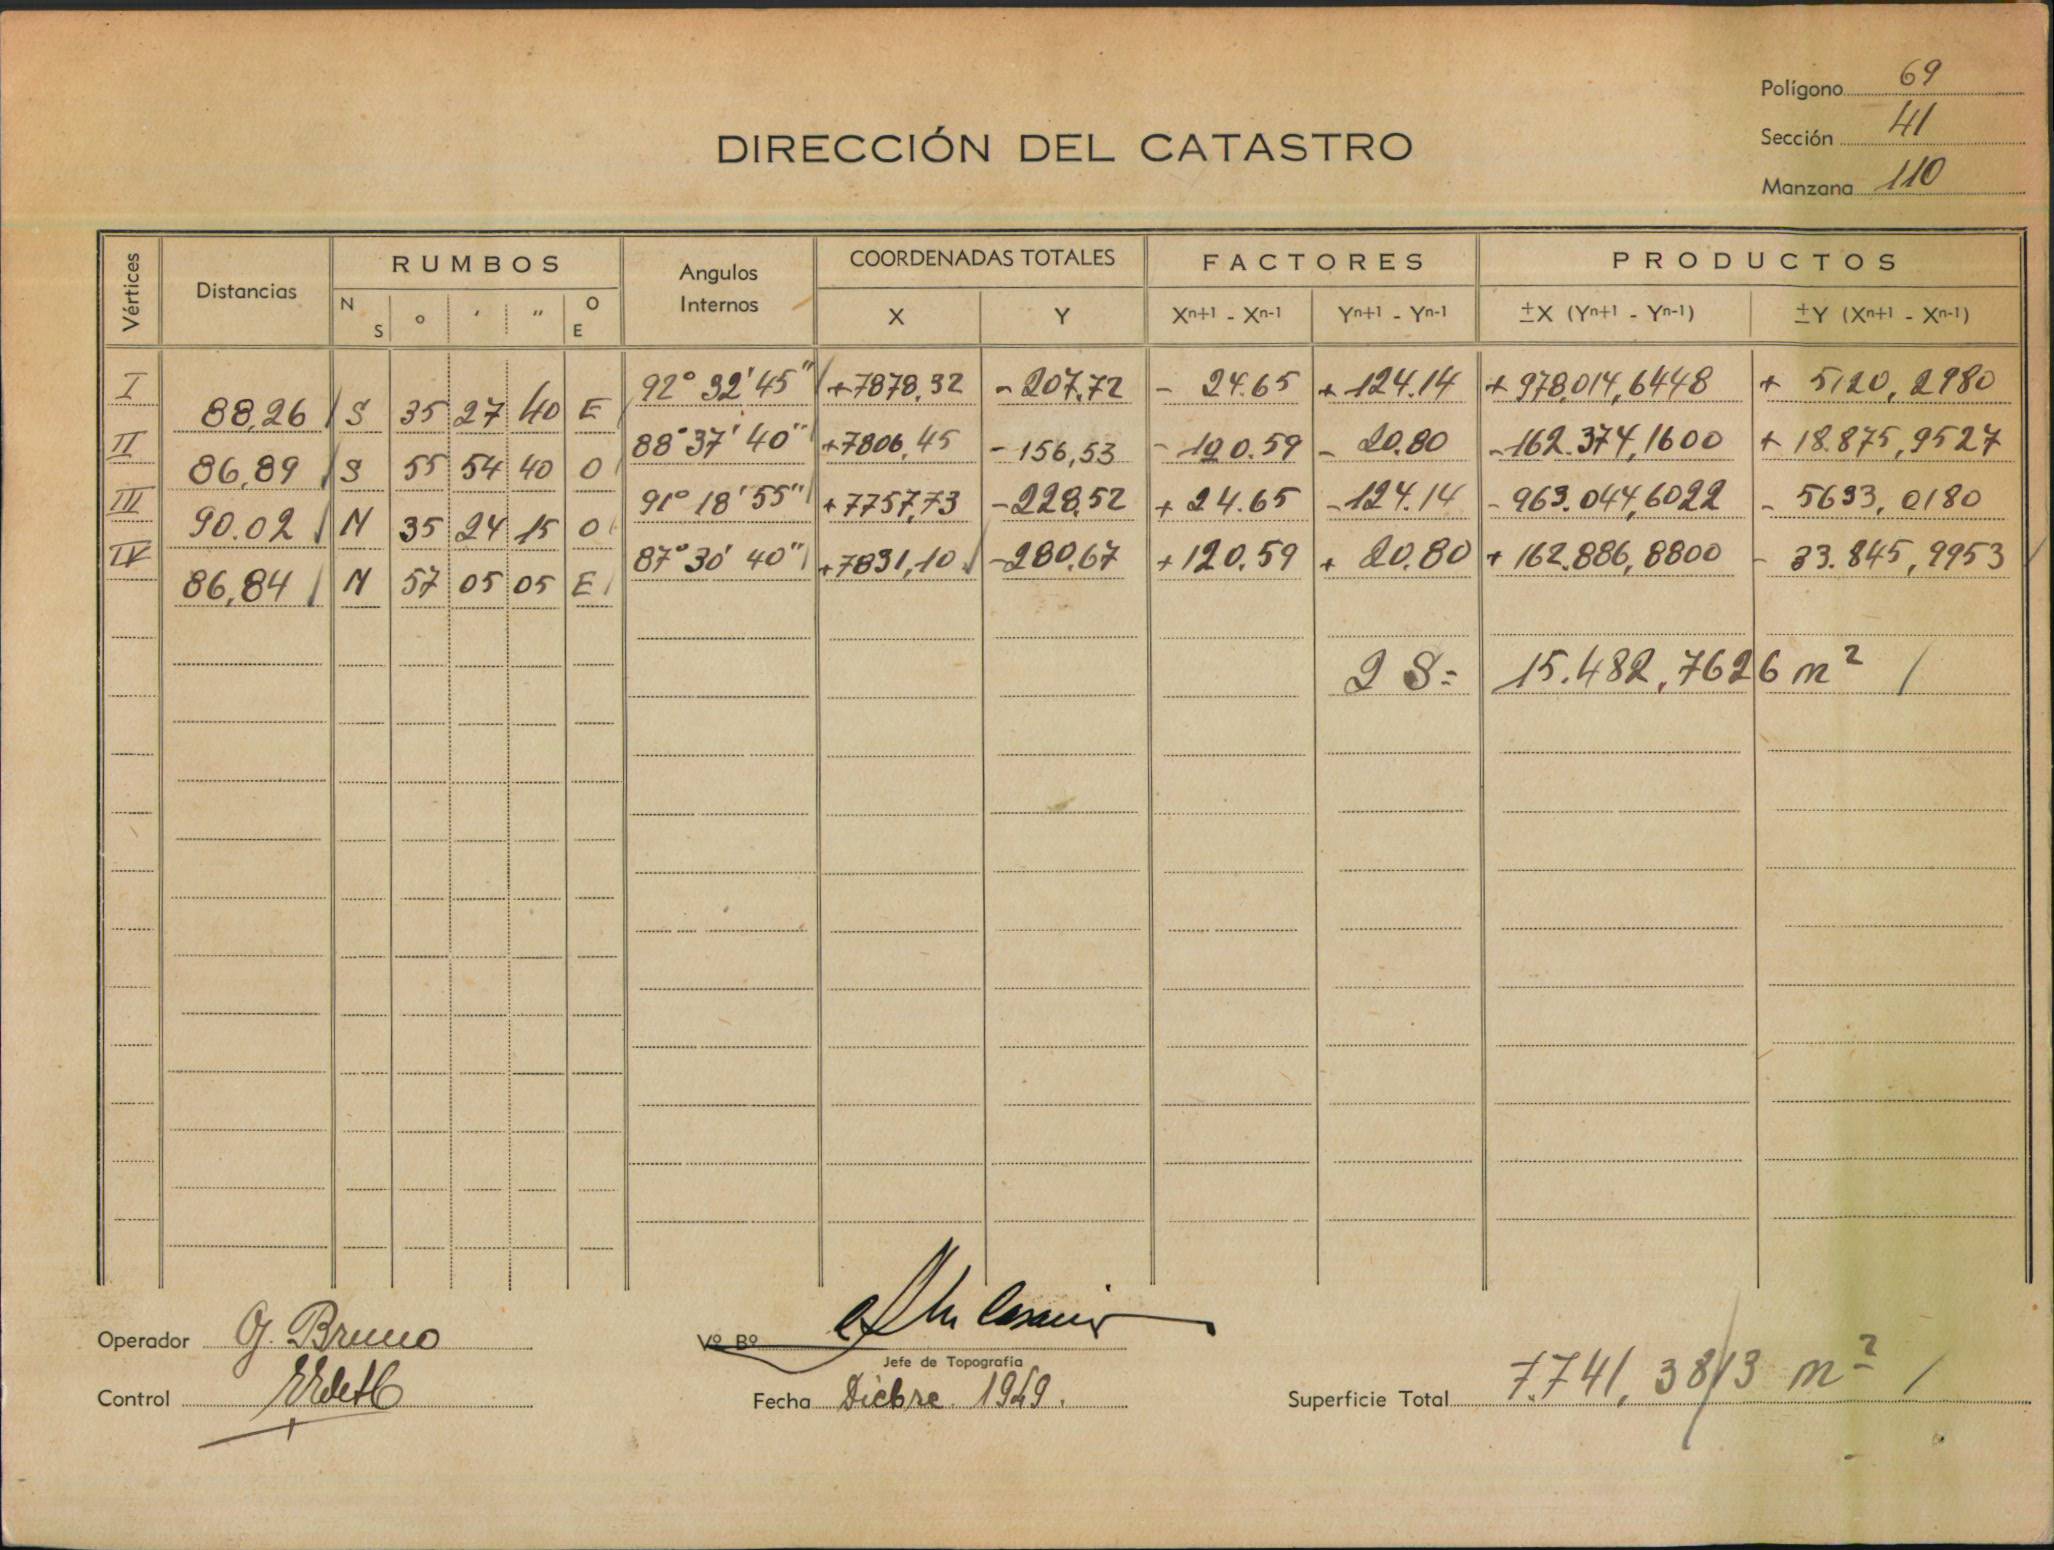 Polígono 69
Sección 41
Manzana 110
DIRECCIÓN DEL CATASTRO
Vértices Distancias RUMBOS Angulos Internos COORDENADAS TOTALES FACTORES PRODUCTOS
N S ° ′ ″ O E X Y Xⁿ⁺¹ - Xⁿ⁻¹ Yⁿ⁺¹ - Yⁿ⁻¹ ±X (Yⁿ⁺¹ - Yⁿ⁻¹) ±Y (Xⁿ⁺¹ - Xⁿ⁻¹)
I 92° 32' 45" +7878,32 - 207,72 - 24.65 + 124.14 + 978.014,6448 + 5120,2980
88,26 S 35 27 40 E
II 88° 37' 40" +7806,45 - 156,53 - 120.59 - 20.80 - 162.374,1600 + 18.875,9527
86,89 S 55 54 40 O
III 91° 18' 55" +7757,73 - 228,52 + 24.65 - 124.14 - 963.044,6022 - 5633,0180
90.02 N 35 24 15 O
IV 87° 30' 40" +7831,10 - 280,67 + 120.59 + 20.80 + 162.886,8800 - 33.845,9953
86,84 N 57 05 05 E
2 S= 15.482,7626 m²
Operador G. Bruno
Control
Vº Bº
Jefe de Topografía
Fecha Dicbre. 1949.
Superficie Total 7.741,3813 m²